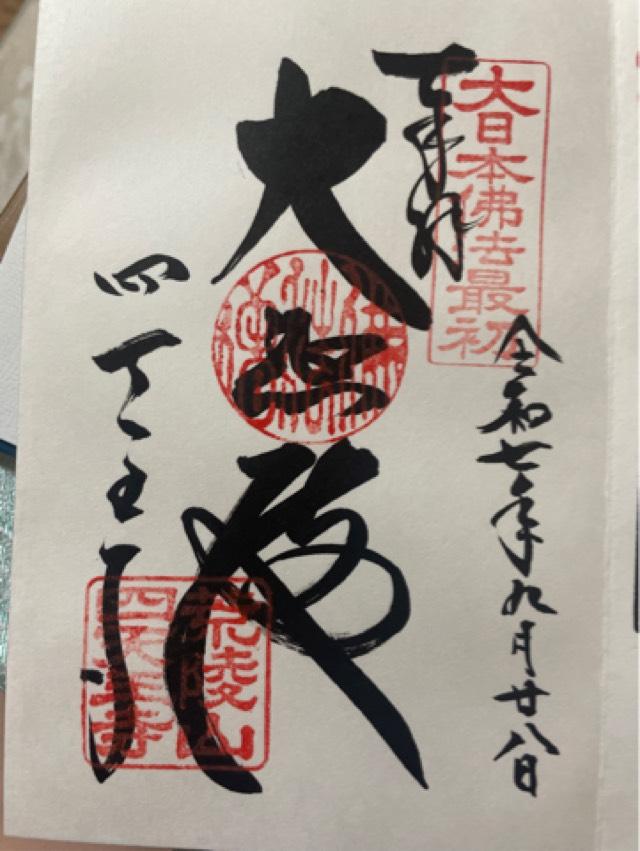 奉拝
大日本佛法最初
令和七年九月廿八日
大悲殿
四天王寺
荒陵山
四天王寺